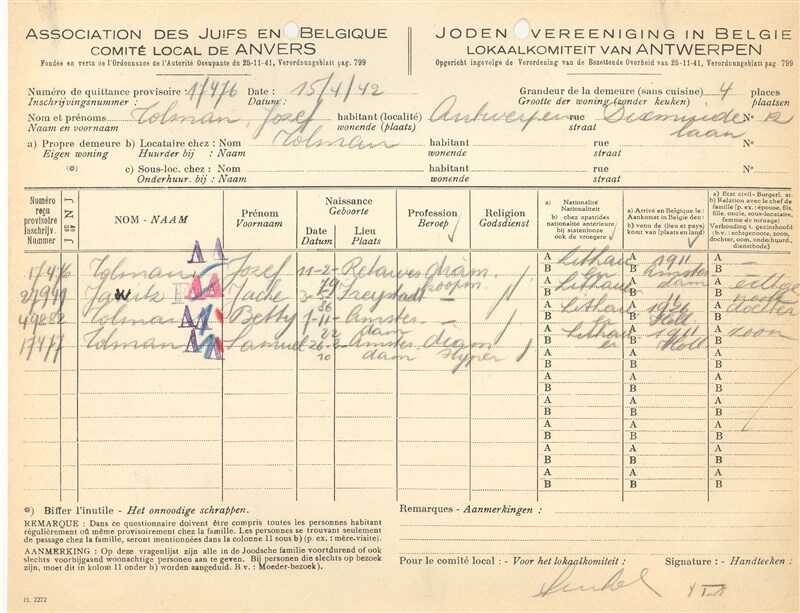 ASSOCIATION DES JUIFS EN BELGIQUE
COMITÉ LOCAL DE ANVERS
Fondée en vertu de l'Ordonnance de l'Autorité Occupante du 25-11-41, Verordnungsblatt pag. 799
JODEN VEREENIGING IN BELGIE
LOKAALKOMITEIT VAN ANTWERPEN
Opgericht ingevolge de Verordening van de Bezettende Overheid van 25-11-41, Verordnungsblatt pag. 799
Numéro de quittance provisoire : 17476 Date : 15/4/42 Grandeur de la demeure (sans cuisine) 4 places
Inschrijvingsnummer : Datum : Grootte der woning (zonder keuken) plaatsen
Nom et prénoms Tolman, Jozef habitant (localité) Antwerpen rue Dixmuide N° 12
Naam en voornaam wonende (plaats) straat laan
a) Propre demeure b) Locataire chez : Nom Tolman habitant rue N°
Eigen woning Huurder bij : Naam wonende straat
(*) c) Sous-loc. chez : Nom habitant rue N°
Onderhuur. bij : Naam wonende straat
Numéro reçu provisoire Inschrijv. Nummer
NOM - NAAM
Prénom Voornaam
Naissance Geboorte
Date Datum
Lieu Plaats
Profession Beroep
Religion Godsdienst
a) Nationalité Nationaliteit b) chez apatrides nationalité antérieure bij statenloozen ook de vroegere
a) Arrivé en Belgique le : Aankomst in België den : b) venu de (lieu et pays) komt van (plaats en land)
a) Etat civil - Burgerl. st. b) Relation avec le chef de famille (p. ex. : épouse, fils, fille, oncle, sous-locataire, femme de ménage) Verhouding t. gezinshoofd (b.v. : echtgenoote, zoon, dochter, oom, onderhuurd., dienstbode)
17476 Tolman Jozef 11-2-79 diam. A Lithau A 1911 A
B B Amsterdam B
27949 Jache Freystadt A Lithau A A
B B B
49282 Tolman Betty 7-11-22 Amsterdam A Lithau A 1926 A
B B Holl B dochter
17477 Tolman Samuel 26-2-10 Amsterdam diam A Lithau A 1911 A
B B Holl B zoon
A A A
B B B
A A A
B B B
A A A
B B B
A A A
B B B
A A A
B B B
*) Biffer l'inutile - Het onnoodige schrappen.
REMARQUE : Dans ce questionnaire doivent être compris toutes les personnes habitant
régulièrement où même provisoirement chez la famille. Les personnes se trouvant seulement
de passage chez la famille, seront mentionnées dans la colonne 11 sous b) (p. ex. : mère-visite).
AANMERKING : Op deze vragenlijst zijn alle in de Joodsche familie voortdurend of ook
slechts voorbijgaand woonachtige personen aan te geven. Bij personen die slechts op bezoek
zijn, moet dit in kolom 11 onder b) worden aangeduid. B v. : Moeder-bezoek).
Remarques - Aanmerkingen :
Pour le comité local : - Voor het lokaalkomiteit : Signature : - Handteeken :
H. 2272